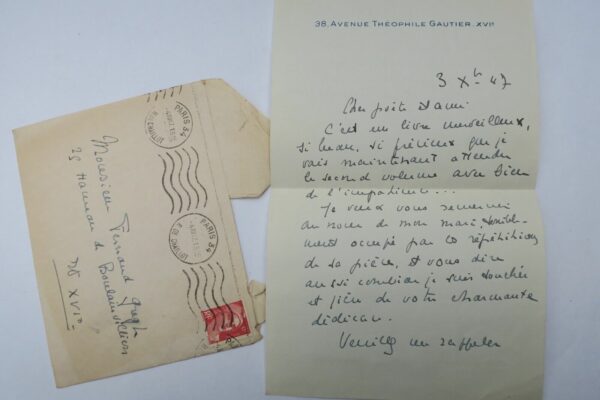 38, AVENUE THÉOPHILE GAUTIER. XVIᵉ
3 Xbre 47
Cher poète et ami
C'est un livre merveilleux,
si beau, si précieux que je
vais maintenant attendre
le second volume avec bien
de l'impatience...
Je veux vous remercier
au nom de mon mari, terrible-
ment occupé par les répétitions
de sa pièce, et vous dire
aussi combien je suis touchée
et fière de votre charmante
dédicace.
Veuillez me rappeler
Monsieur Fernand Gregh
25 Hameau de Boulainvilliers
XVIᵉ
PARIS
PARIS